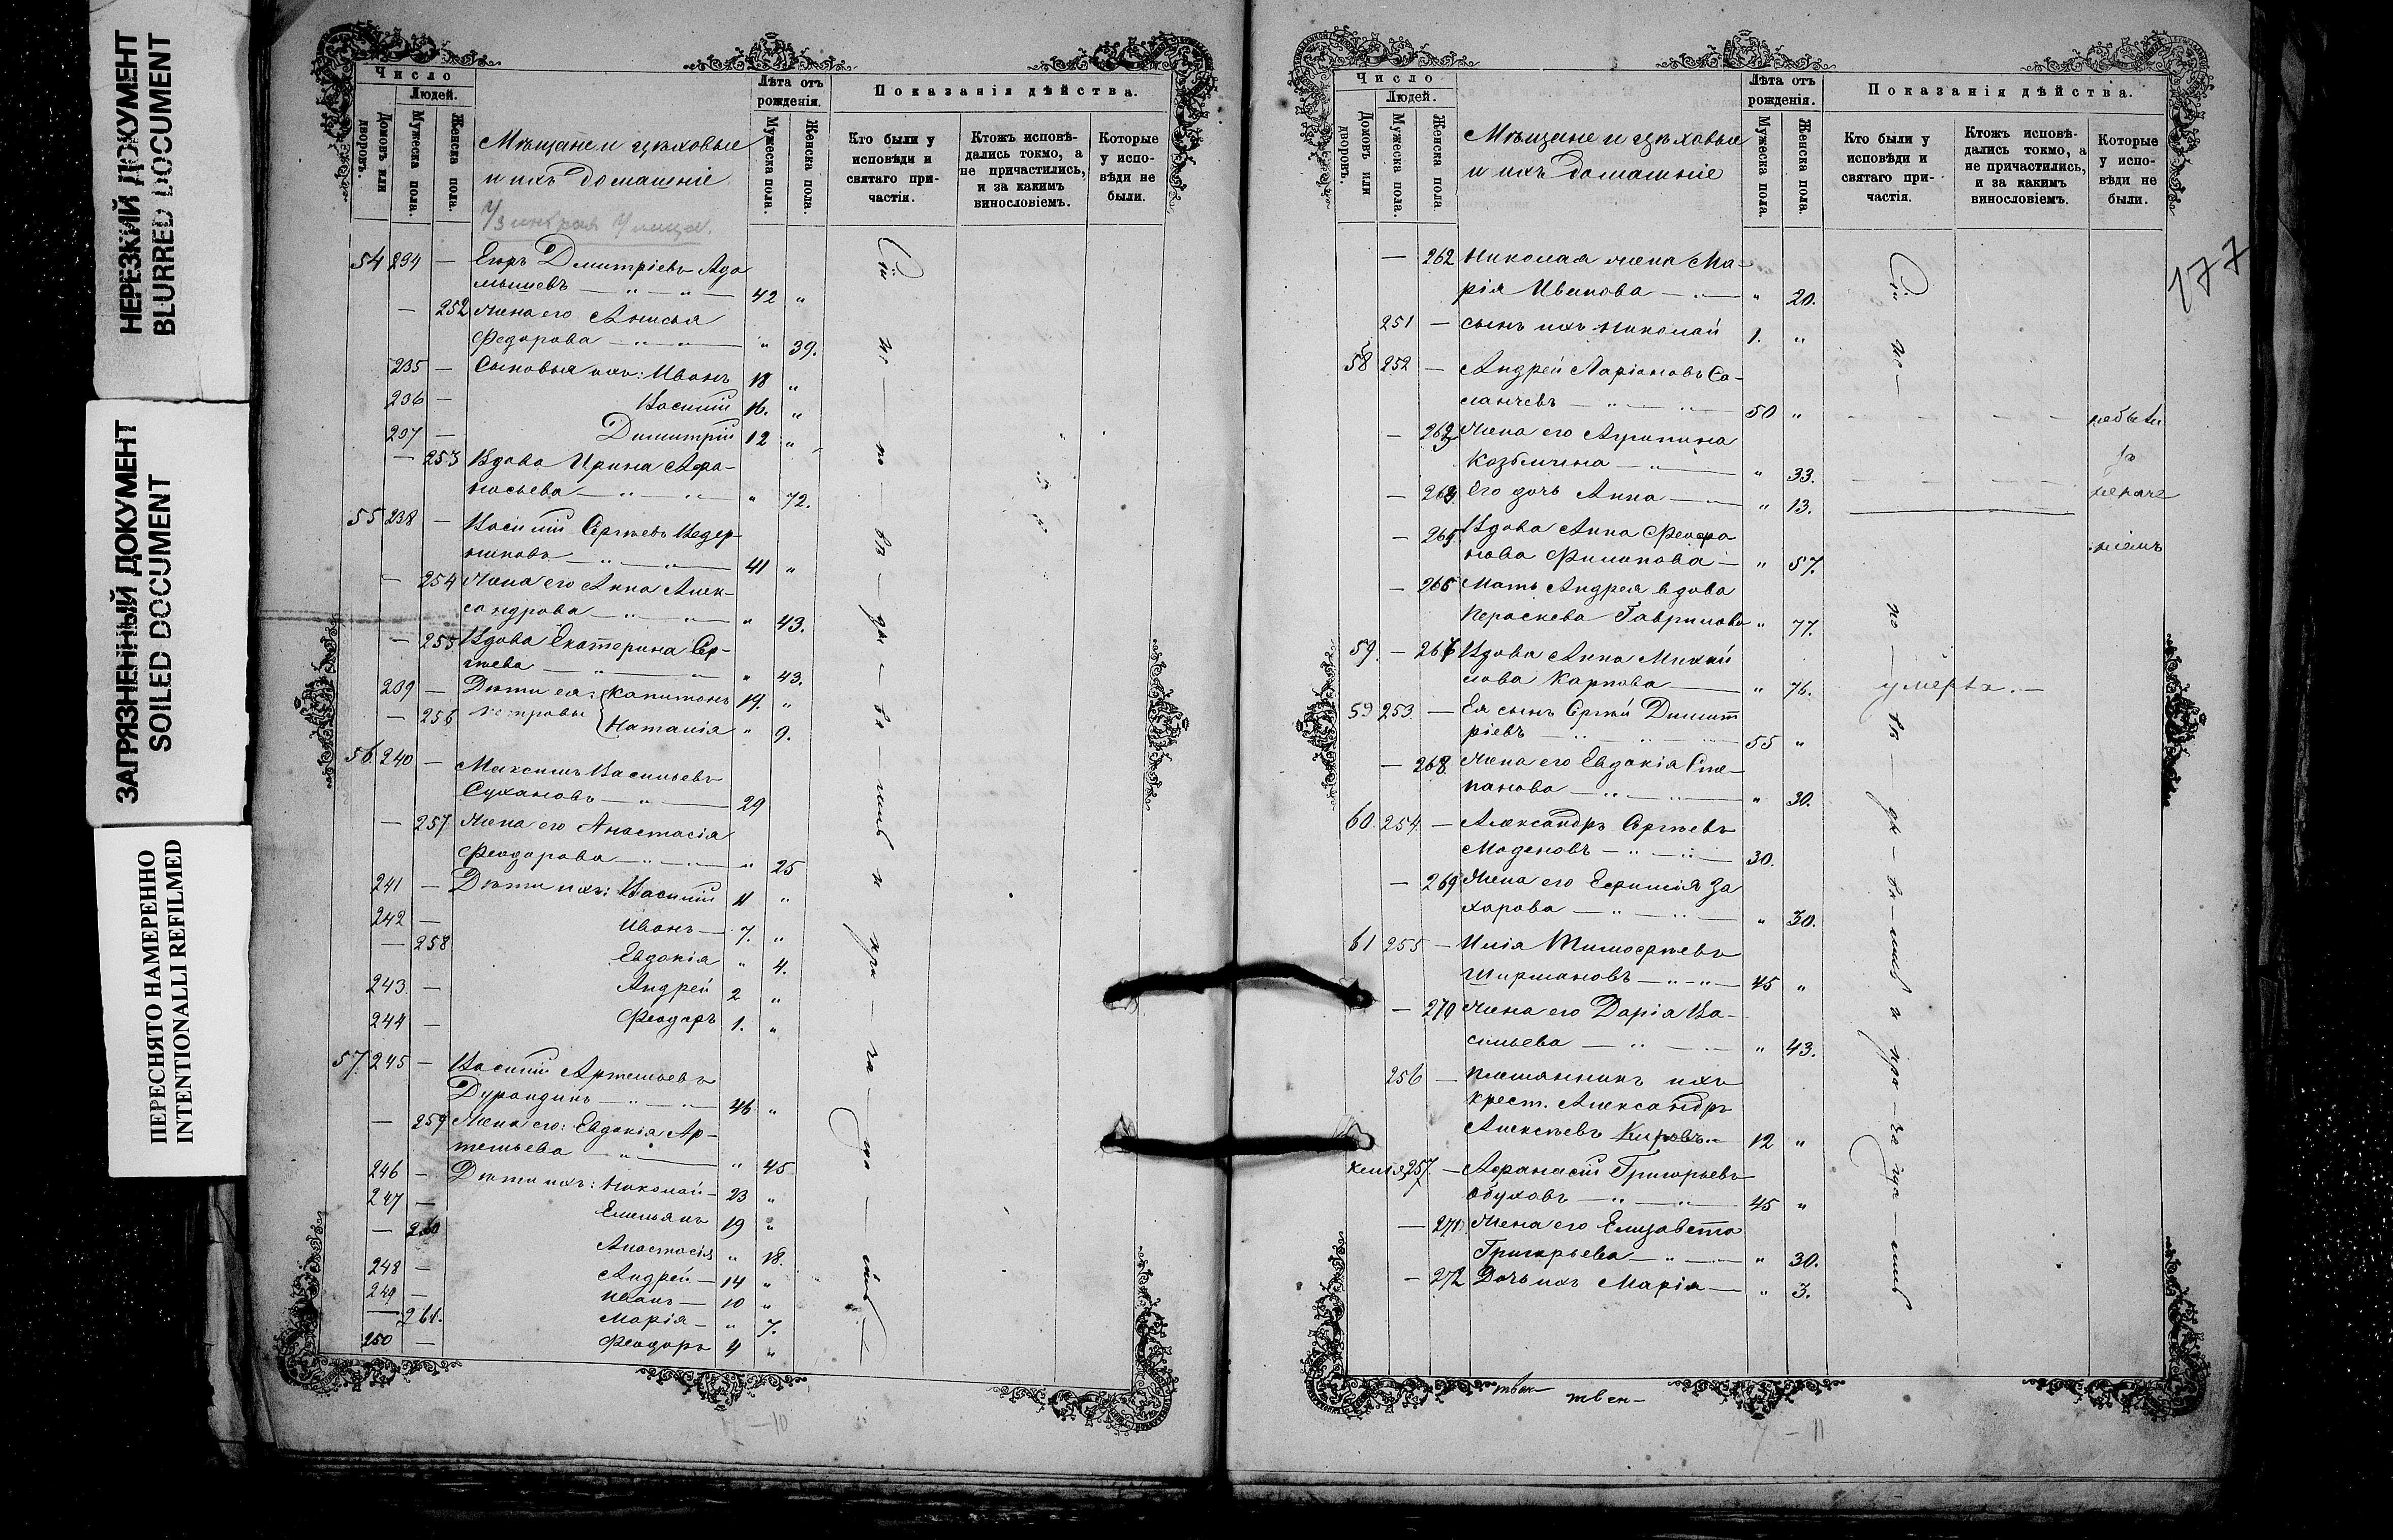 НЕРЕЗКИЙ ДОКУМЕНТ
BLURRED DOCUMENT
ЗАГРЯЗНЕННЫЙ ДОКУМЕНТ
SOILED DOCUMENT
ПЕРЕСНЯТО НАМЕРЕННО
INTENTIONALLI REFILMED
Число
Людей.
Домовъ или дворовъ.
Мужеска пола.
Женска пола.
Мѣщане и цѣховые
и ихъ домашніе
Лѣта отъ рожденія.
Мужеска пола.
Женска пола.
Показанія дѣйства.
Кто были у исповѣди и святаго причастія.
Ктожъ исповѣдались токмо, а не причастились, и за какимъ винословіемъ.
Которые у исповѣди не были.
54 234 — Егоръ Дмитріевъ
42 "
— 252 Жена его Анисья
Федорова — " — " — " 39.
235 — Сыновья ихъ: Иванъ 18 "
236 — Василій 16. "
237 — Димитрій 12 "
— 253 Вдова Ирина Афа-
насьева — " — " — " 72.
55 238 — Василій Сергѣевъ Ведер-
никовъ — " — " — 41 "
— 254 Жена его Анна Алек-
сандрова — " — " — " 43.
— 255 Вдова Екатерина Сер-
гѣева — " — " — " 43.
239 — Дѣти ея: Капитонъ 19. "
— 256 Петровы Наталія " 9.
56 240 — Максимъ Васильевъ
Сухановъ — " — 29
— 257 Жена его Анастасія
Феодорова — " — " — " 25
241 — Дѣти ихъ: Василій 11 "
242 — Иванъ — 7. "
— 258 Евдокія " 4.
243 — Андрей 2 "
244 — Феодоръ 1. "
57. 245 — Василій Артемьевъ
Дурандинъ — " — " — 46 "
— 259 Жена его: Евдокія Ар-
темьева — " — " 45
246 — Дѣти ихъ: Николай — 23 "
247 — Емельянъ 19 "
— 260 Анастасія " 18.
248 — Андрей — 14 "
249 — Иванъ — 10 "
— 261. Марія — " 7.
250 — Феодоръ 4 "
— 10
Число
Людей.
Домовъ или дворовъ.
Мужеска пола.
Женска пола.
Мѣщане и цѣховые
и ихъ домашніе
Лѣта отъ рожденія.
Мужеска пола.
Женска пола.
Показанія дѣйства.
Кто были у исповѣди и святаго причастія.
Ктожъ исповѣдались токмо, а не причастились, и за какимъ винословіемъ.
Которые у исповѣди не были.
177
— 262 Николая жена Ма-
рія Иванова — " — " 20.
251 — сынъ ихъ Николай 1. "
58 252 — Андрей Ларіоновъ Са-
50 "
— 263 Жена его Агрипина
Козьмина — " — " 33.
— 264 Его дочь Анна — " — " 13.
— 265 Вдова Анна Феофа
нова Филипова — " 57.
— 266 Мать Андрея вдова
Параскева Гаврилова " 77.
59. — 267 Вдова Анна Михай
лова Карпова — " 76. умерла. —
59 253. — Ея сынъ Сергѣй Димит
ріевъ — " — " — 55 "
— 268. Жена его Евдокія Сте-
панова — " — " — " 30.
60. 254. — Александръ Сергѣевъ
Моденовъ — " — " — 30.
— 269 Жена его Ефимія За
харова — " — " — " 30.
61 255 — Илія Тимофѣевъ
Ширмановъ — " — " — 45 "
— 270 Жена его Дарія Ва-
сильева — " — " — " 43.
256 — племянникъ ихъ
крест. Александръ
Алексѣевъ 12 "
257 — Афанасій Григорьевъ
Обуховъ — " — " — 45 "
— 271 Жена его Елизавета
Григорьева — " — " 30.
— 272 Дочь ихъ Марія — " 3.
твен—
твен—
7 — 11